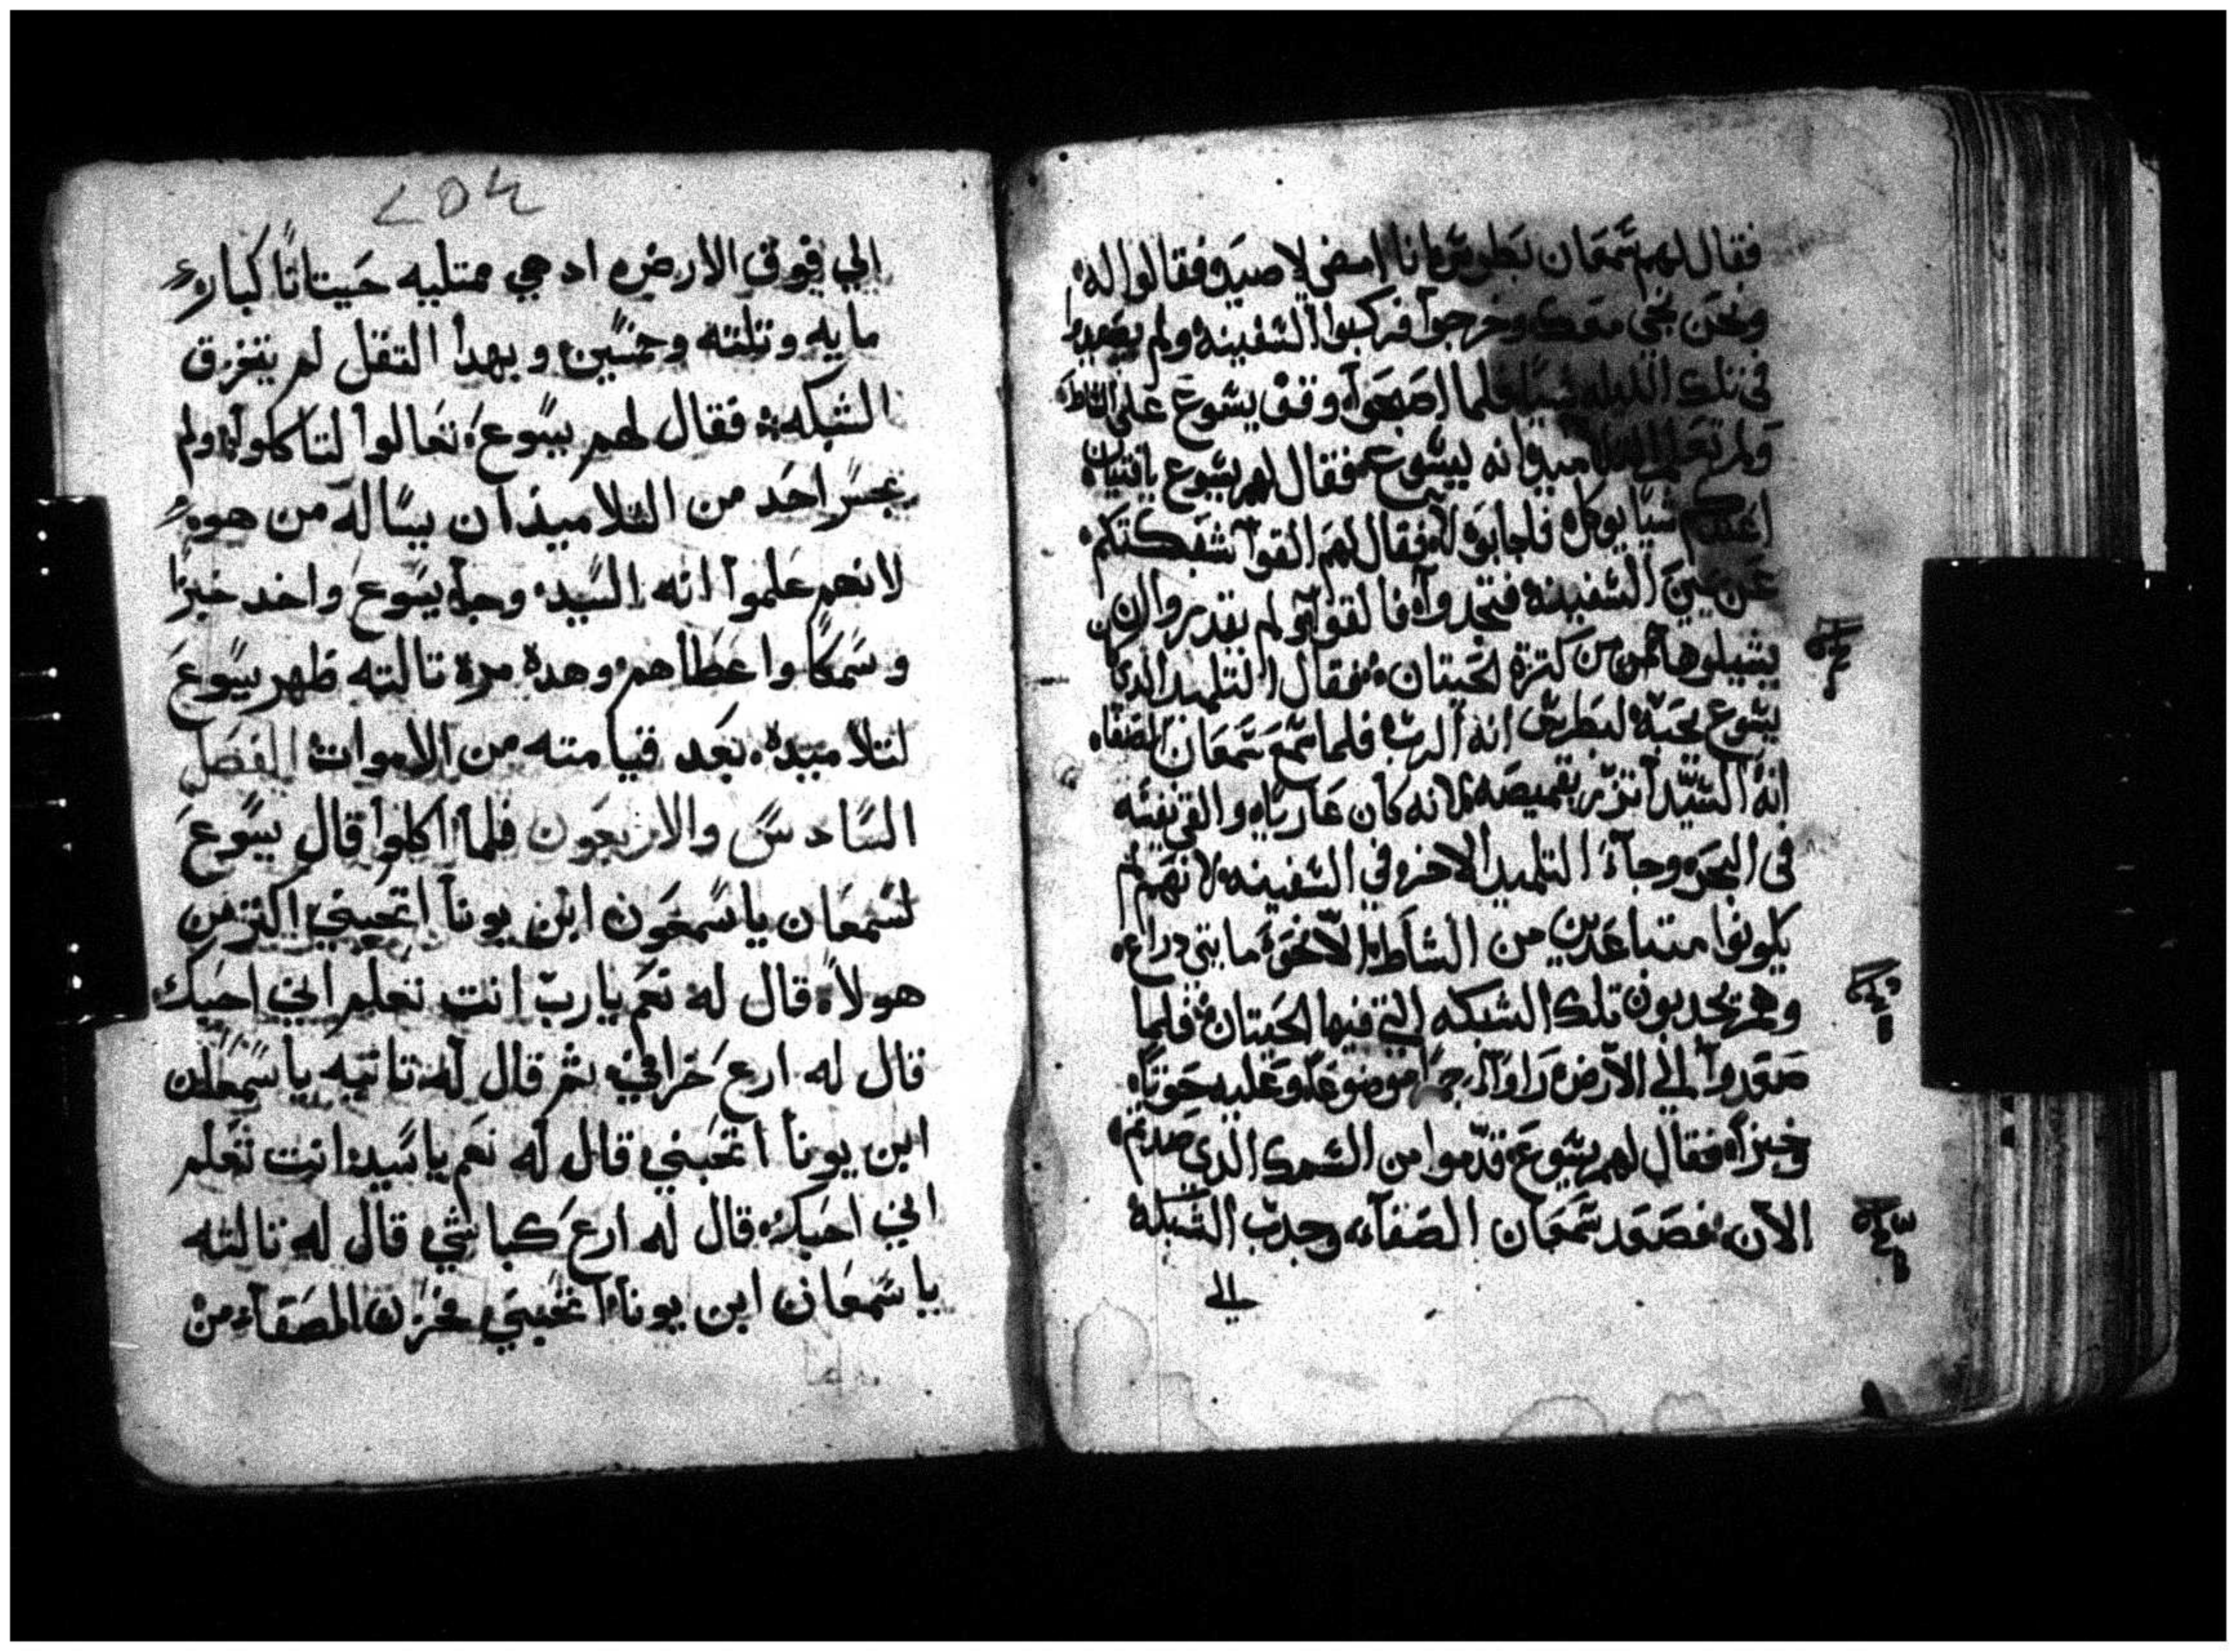 فقال لهم شمعان بطرس انا امضي لاصيد فقالوا له
ونحن نجي معك وخرجوا فركبوا السفينه ولم يصيدوا
في تلك الليله شيا فلما اصبحوا وقف يسوع على الشاط
ولم تعلم التلاميد انه يسوع فقال لهم يسوع يا فتيان
اعندكم شيا يوكل فاجابوه لا فقال لهم القوا شبكتكم
عن يمين السفينه فتجدوا فالقوا ولم يقدروا ان
يشيلوها من كترة الحيتان فقال التلميد الدي كان
يسوع يحبه لبطرس انه الرب فلما سمع شمعان الصفا
انه السيد اتزر بقميصه لانه كان عاريا والقى نفسه
في البحر وجآء التلميد الاخر في السفينه لانهم لم
يكونوا متباعدين من الشاط الا نحو مايتي دراع
وهم يجدبون تلك الشبكه التي فيها الحيتان فلما
صعدوا الى الارض راوا جمرا موضوعا وعليه حوتا
وخبزا فقال لهم يسوع قدموا من السمك الدي صدتم
الان فصعد شمعان الصفآء وجدب الشبكه
الي
204
الي فوق الارض اد هي ممتليه حيتانا كبار
مايه وتلته وخمسين وبهدا التقل لم يتخرق
الشبكه فقال لهم يسوع تعالوا لتاكلوا ولم
يجسر احد من التلاميذ ان يساله من هو
لانهم علموا انه السيد وجآ يسوع واخد خبزا
وسمكا واعطاهم وهدة مرة تالته ظهر يسوع
لتلاميده بعد قيامته من الاموات الفصل
السادس والاربعون فلما اكلوا قال يسوع
لشمعان ياسمعون ابن يونا اتحبني اكتر من
هولا قال له نعم يارب انت تعلم اني احبك
قال له ارع خرافي تم قال له تانيه ياسمعان
ابن يونا اتحبني قال له نعم ياسيد انت تعلم
اني احبك قال له ارع كباشي قال له تالته
ياسمعان ابن يونا اتحبني فحزن الصفآ من